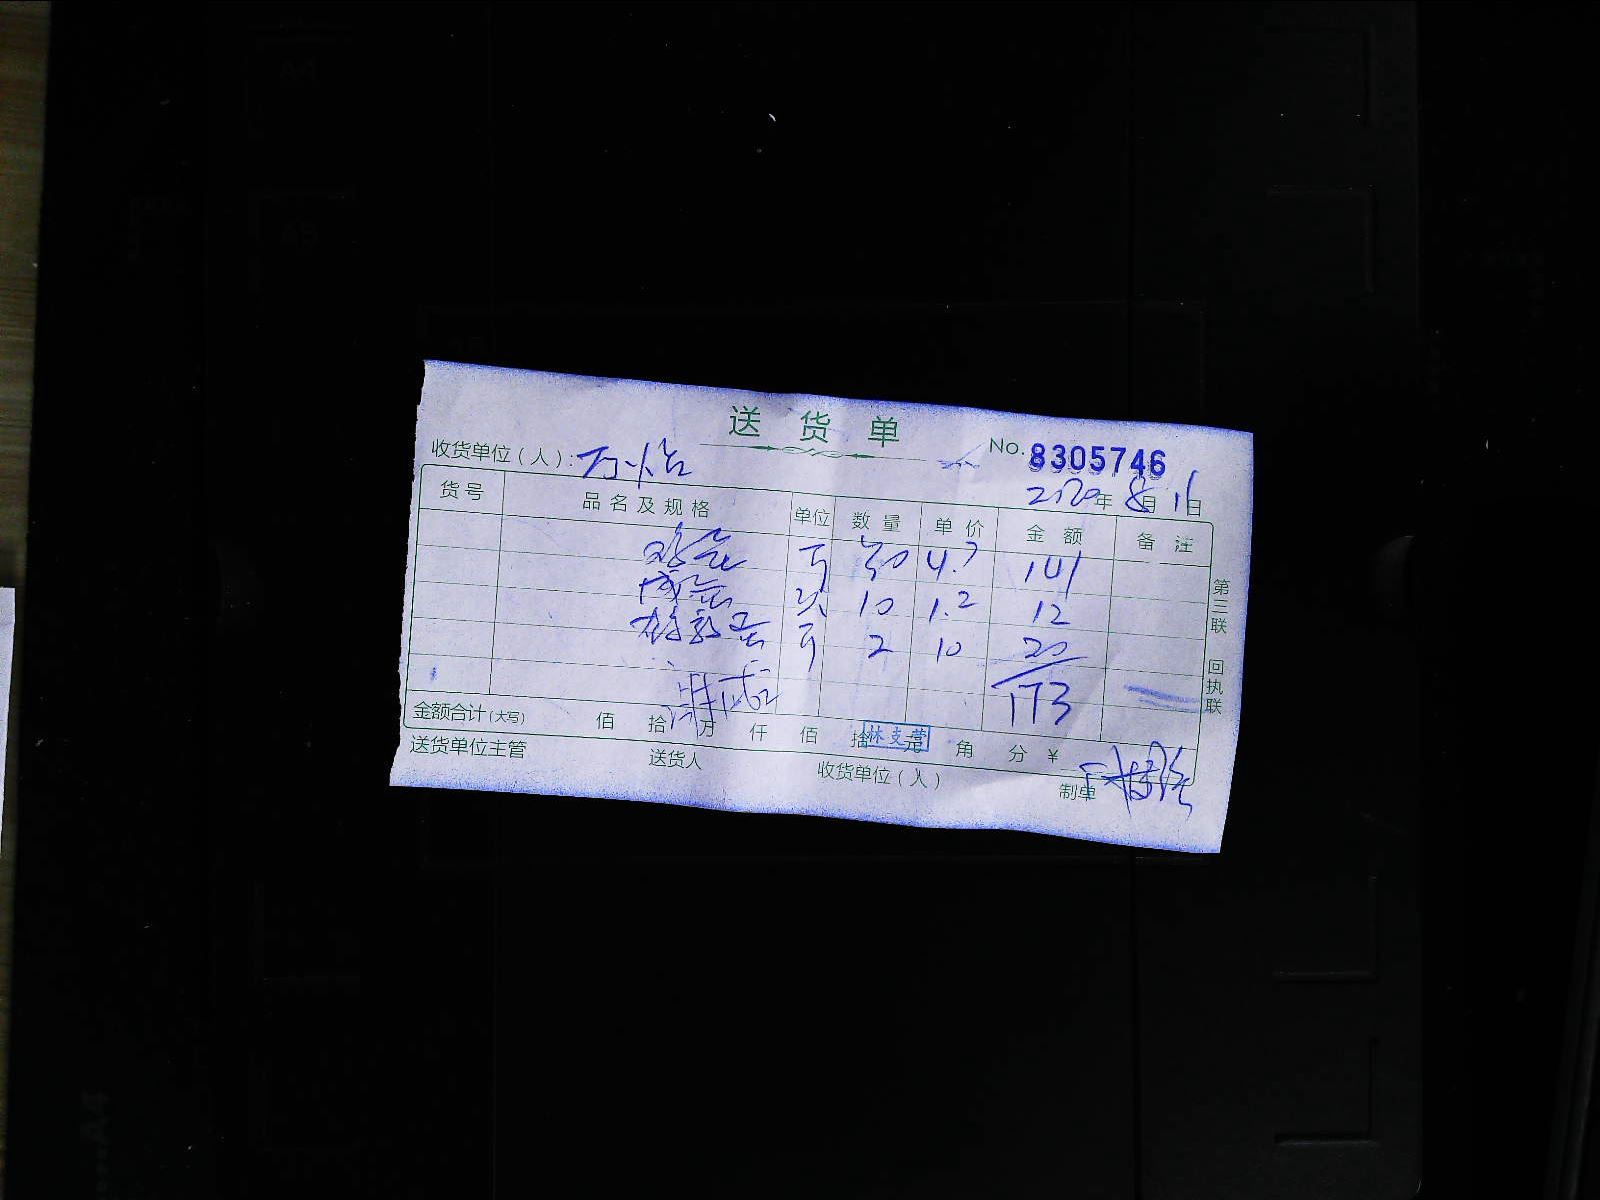 送 货 单
No. 8305746
收货单位(人):
2020年8月16日
货号 品名及规格 单位 数量 单价 金额 备注
鸡蛋 斤 30 4.7 141
咸蛋 只 10 1.2 12
斤 2 10 20
173
金额合计(大写) 佰 拾 万 仟 佰 拾 元 角 分 ¥
林支营
送货单位主管 送货人 收货单位(人) 制单
第三联 回执联